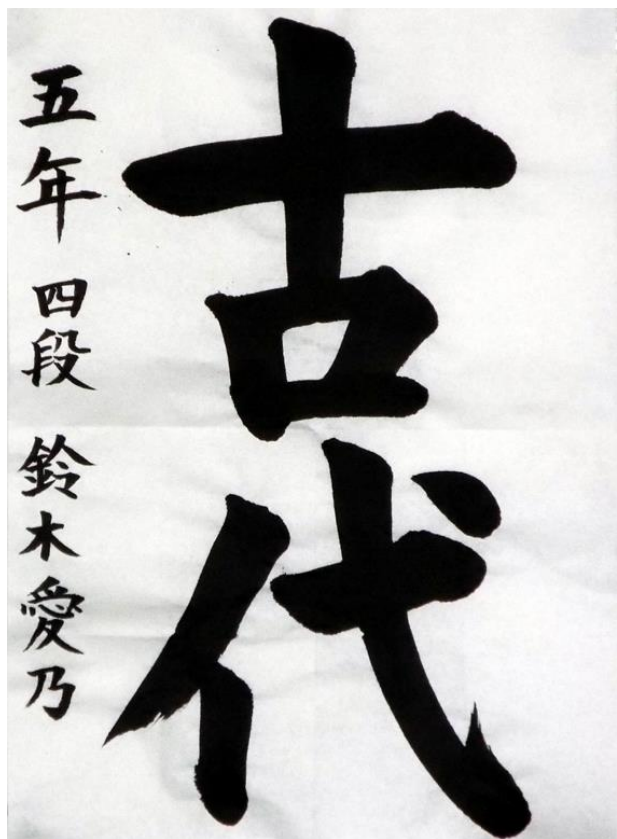 古代
五年 四段 鈴木愛乃